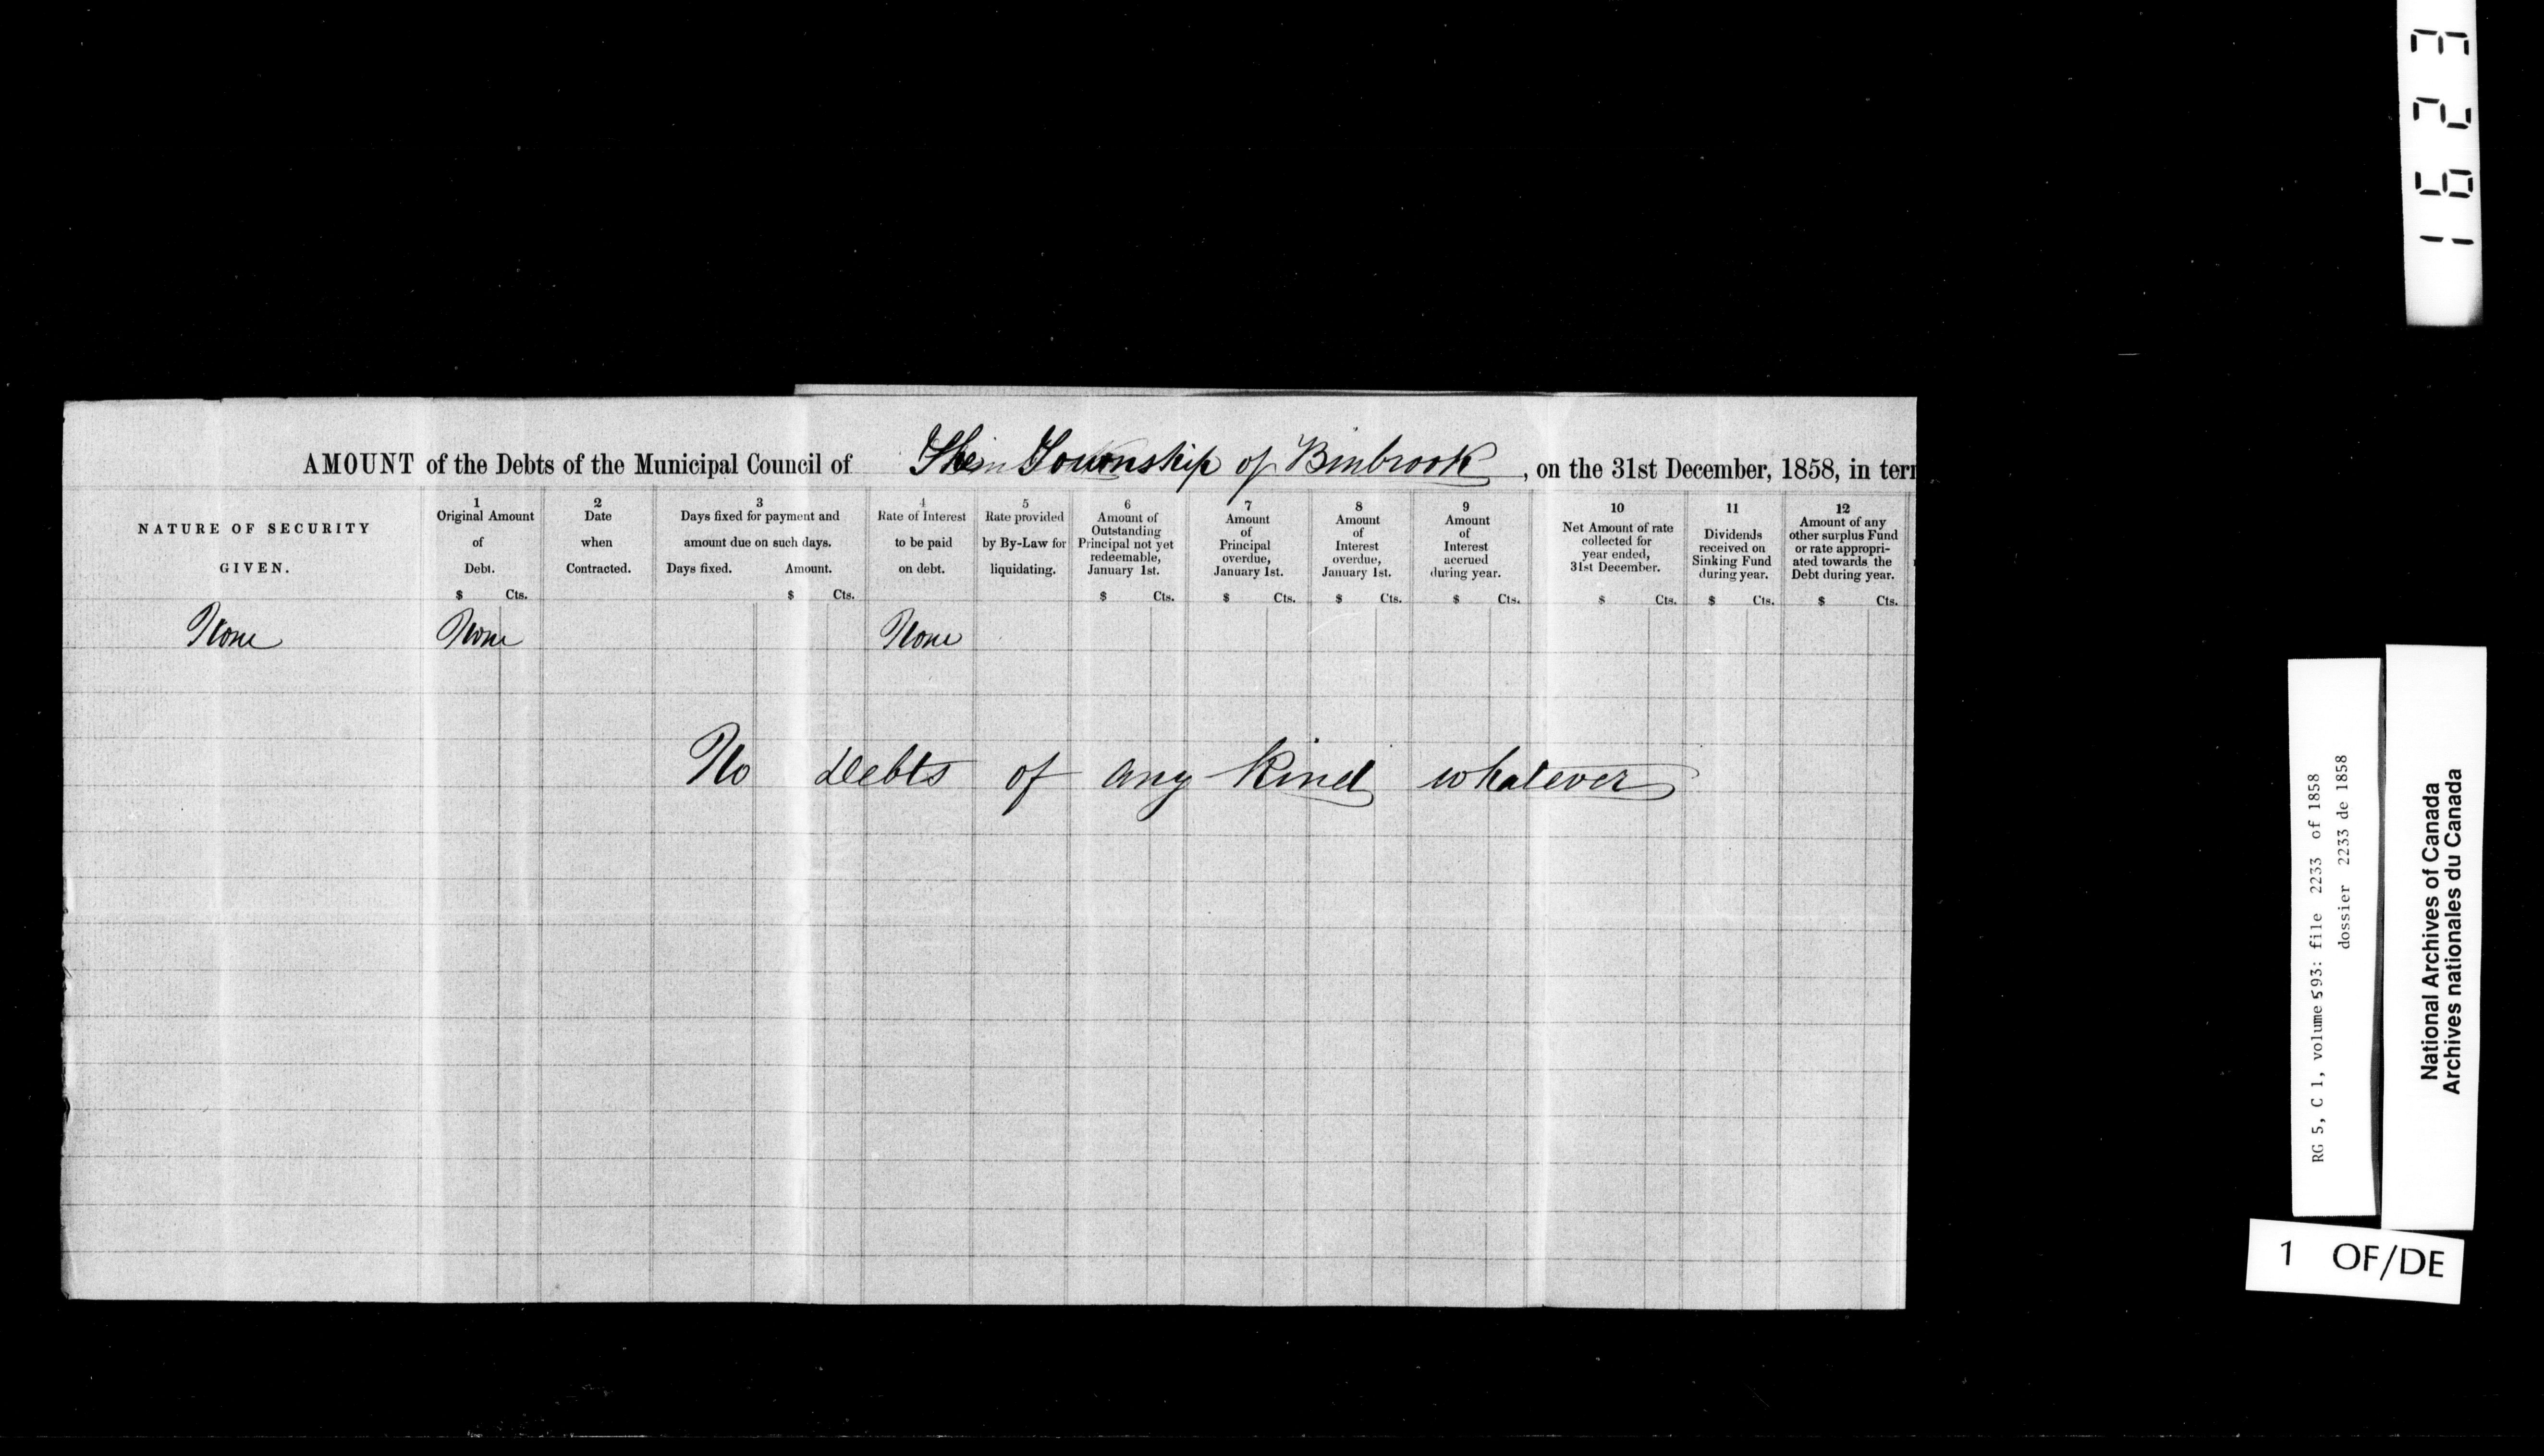 AMOUNT of the Debts of the Municipal Council of The Township of Binbrook, on the 31st December, 1858, in ter
NATURE OF SECURITY GIVEN.
1 Original Amount of Debt. $ Cts.
2 Date when Contracted.
3 Days fixed for payment and amount due on such days. Days fixed. Amount. $ Cts.
4 Rate of Interest to be paid on debt.
5 Rate provided by By-Law for liquidating.
6 Amount of Outstanding Principal not yet redeemable, January 1st. $ Cts.
7 Amount of Principal overdue, January 1st. $ Cts.
8 Amount of Interest overdue, January 1st. $ Cts.
9 Amount of Interest accrued during year. $ Cts.
10 Net Amount of rate collected for year ended, 31st December. $ Cts.
11 Dividends received on Sinking Fund during year. $ Cts.
12 Amount of any other surplus Fund or rate appropriated towards the Debt during year. $ Cts.
None None None
No Debts of any Kind whatever
1623
RG 5, C 1, volume 593: file 2233 of 1858
dossier 2233 de 1858
National Archives of Canada
Archives nationales du Canada
1 OF/DE